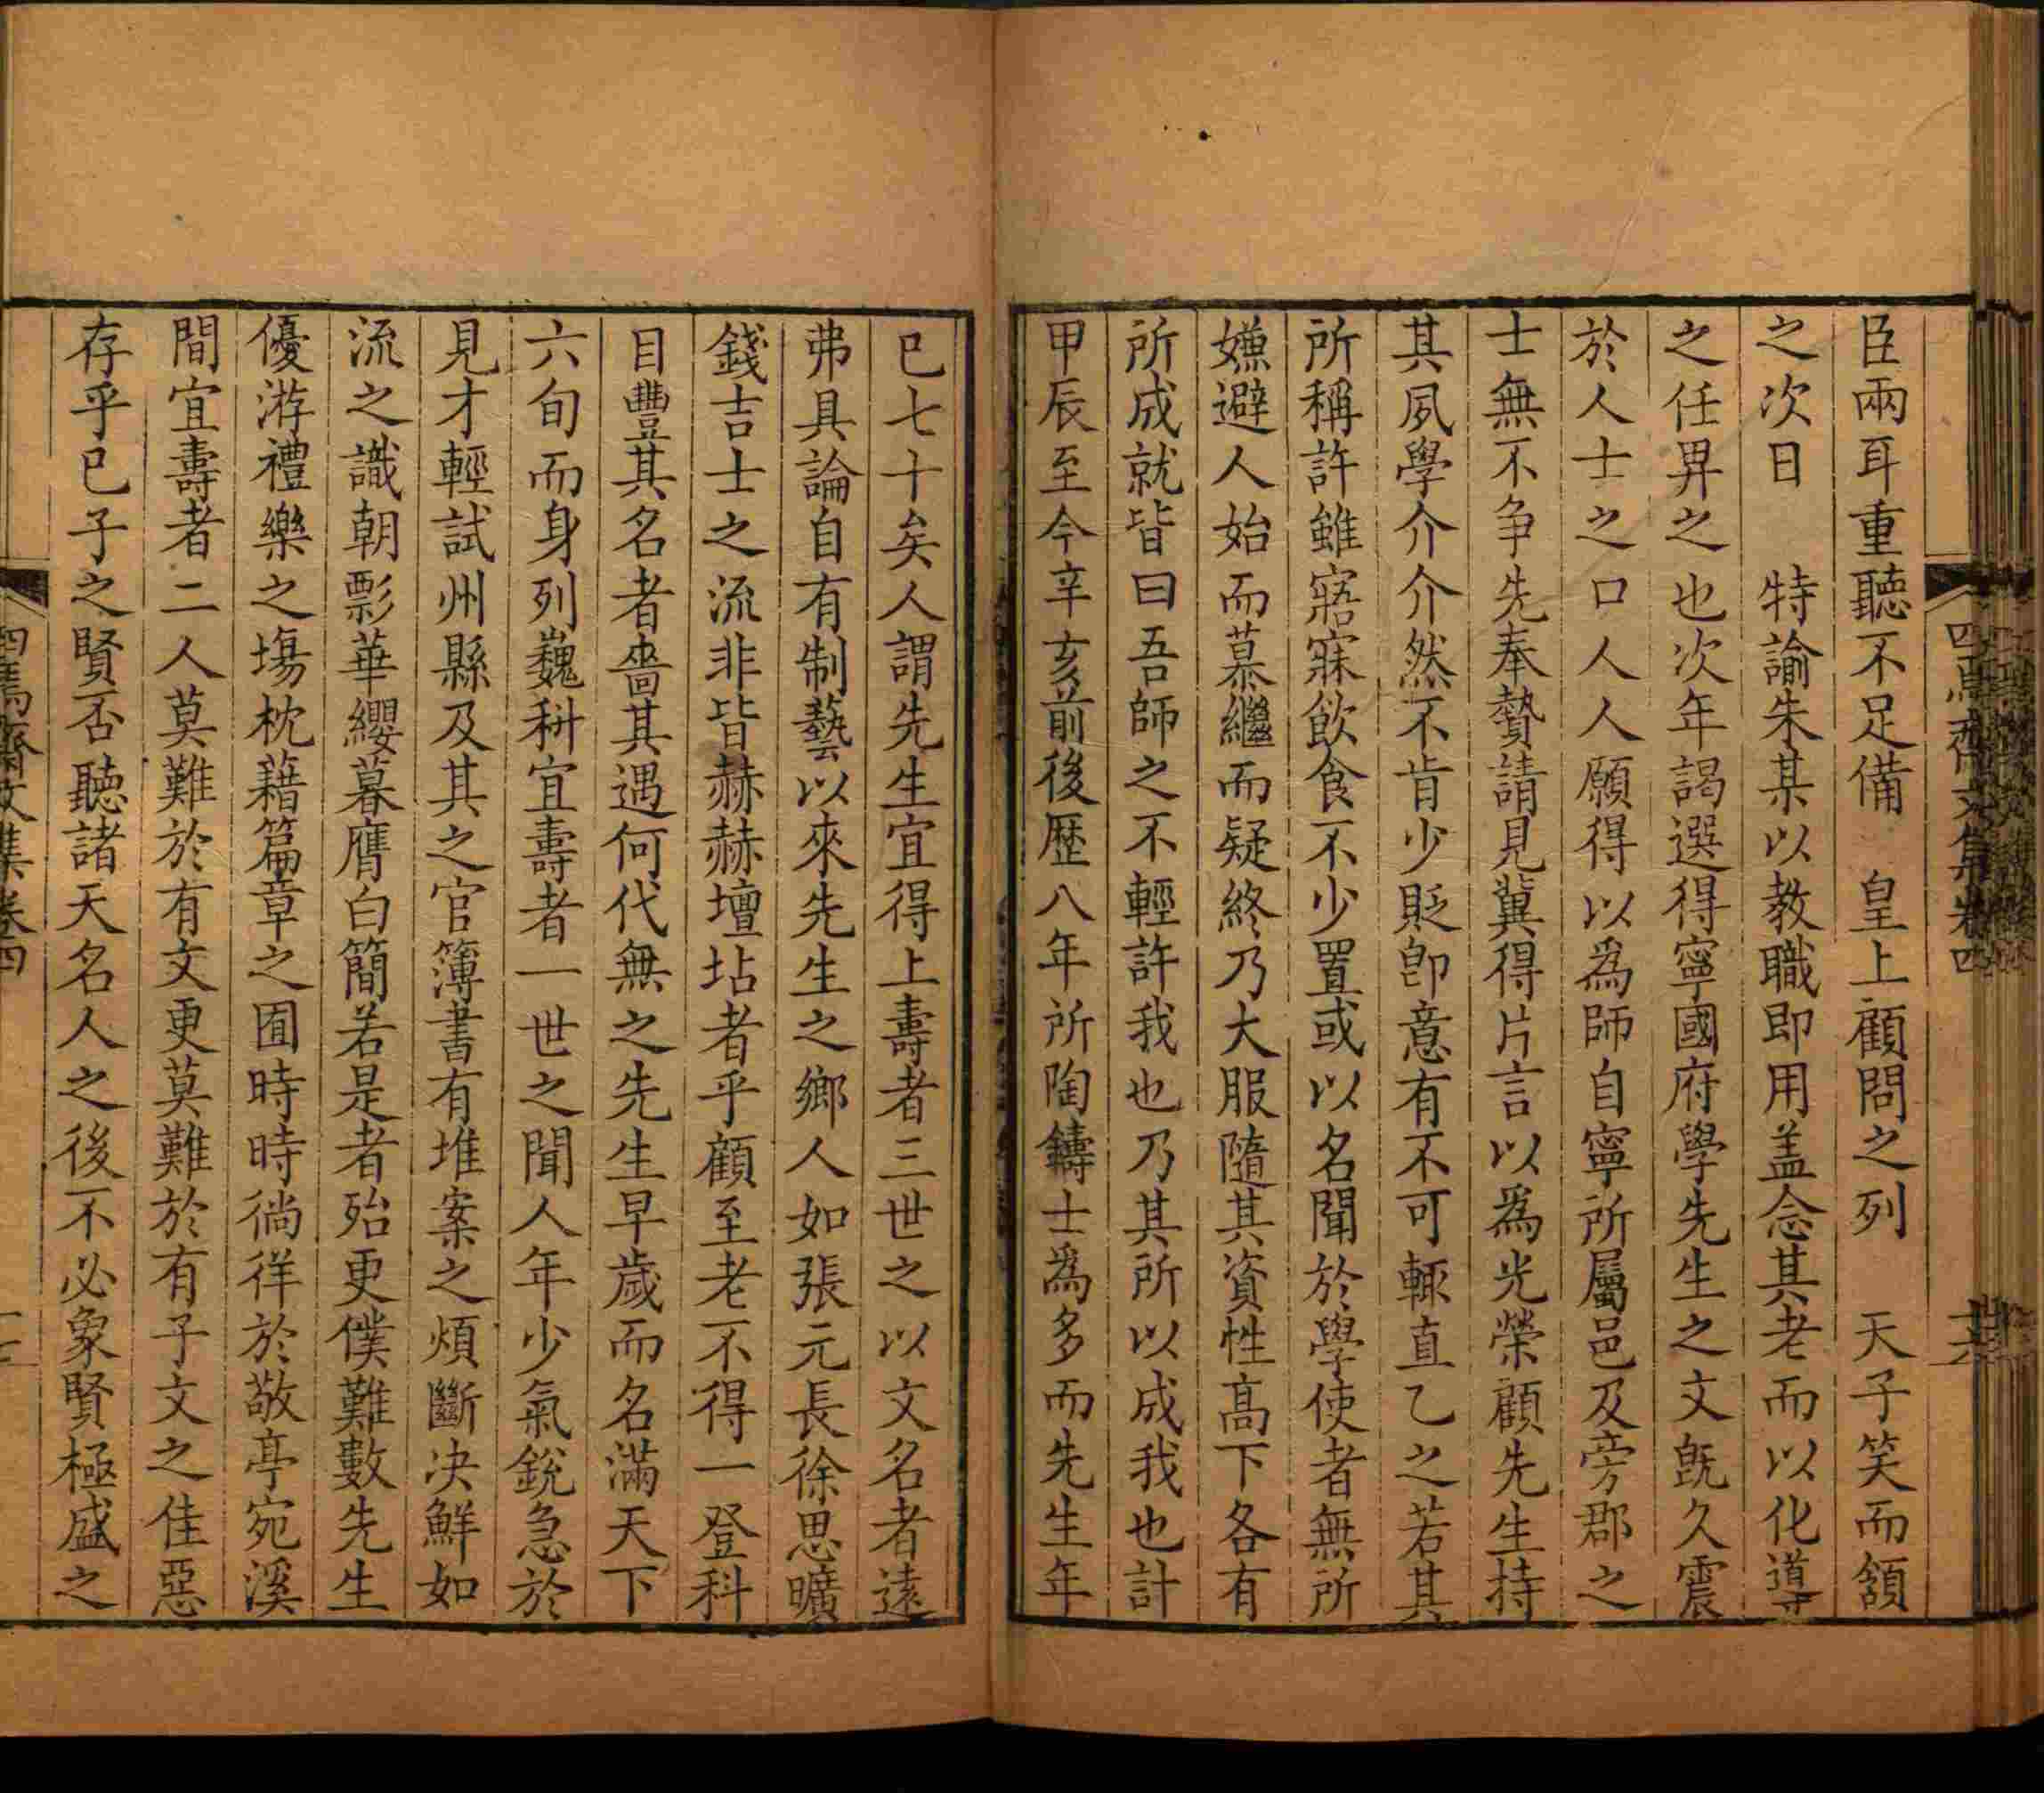 臣兩耳重聽不足備　皇上顧問之列　天子笑而頷
之次日　特諭朱某以教職即用盖念其老而以化導
之任畀之也次年謁選得寧國府學先生之文旣久震
於人士之口人人願得以爲師自寧所屬邑及旁郡之
士無不争先奉贄請見冀得片言以爲光榮顧先生持
其夙學介介然不肯少貶卽意有不可輒直乙之若其
所稱許雖寤寐飲食不少置或以名聞於學使者無所
嫌避人始而慕繼而疑終乃大服隨其資性高下各有
所成就皆曰吾師之不輕許我也乃其所以成我也計
甲辰至今辛亥前後歷八年所陶鑄士爲多而先生年
已七十矣人謂先生宜得上壽者三世之以文名者遠
弗具論自有制藝以來先生之鄉人如張元長徐思曠
錢吉士之流非皆赫赫壇坫者乎顧至老不得一登科
目豐其名者嗇其遇何代無之先生早歲而名滿天下
六旬而身列巍科宜壽者一世之聞人年少氣銳急於
見才輕試州縣及其之官簿書有堆案之煩斷决鮮如
流之識朝影華纓暮膺白簡若是者殆更僕難數先生
優游禮樂之塲枕藉篇章之囿時時徜徉於敬亭宛溪
間宜壽者二人莫難於有文更莫難於有子文之佳惡
存乎已子之賢否聽諸天名人之後不必象賢極盛之
四焉齋文集卷四
十六
四焉齋文集卷四